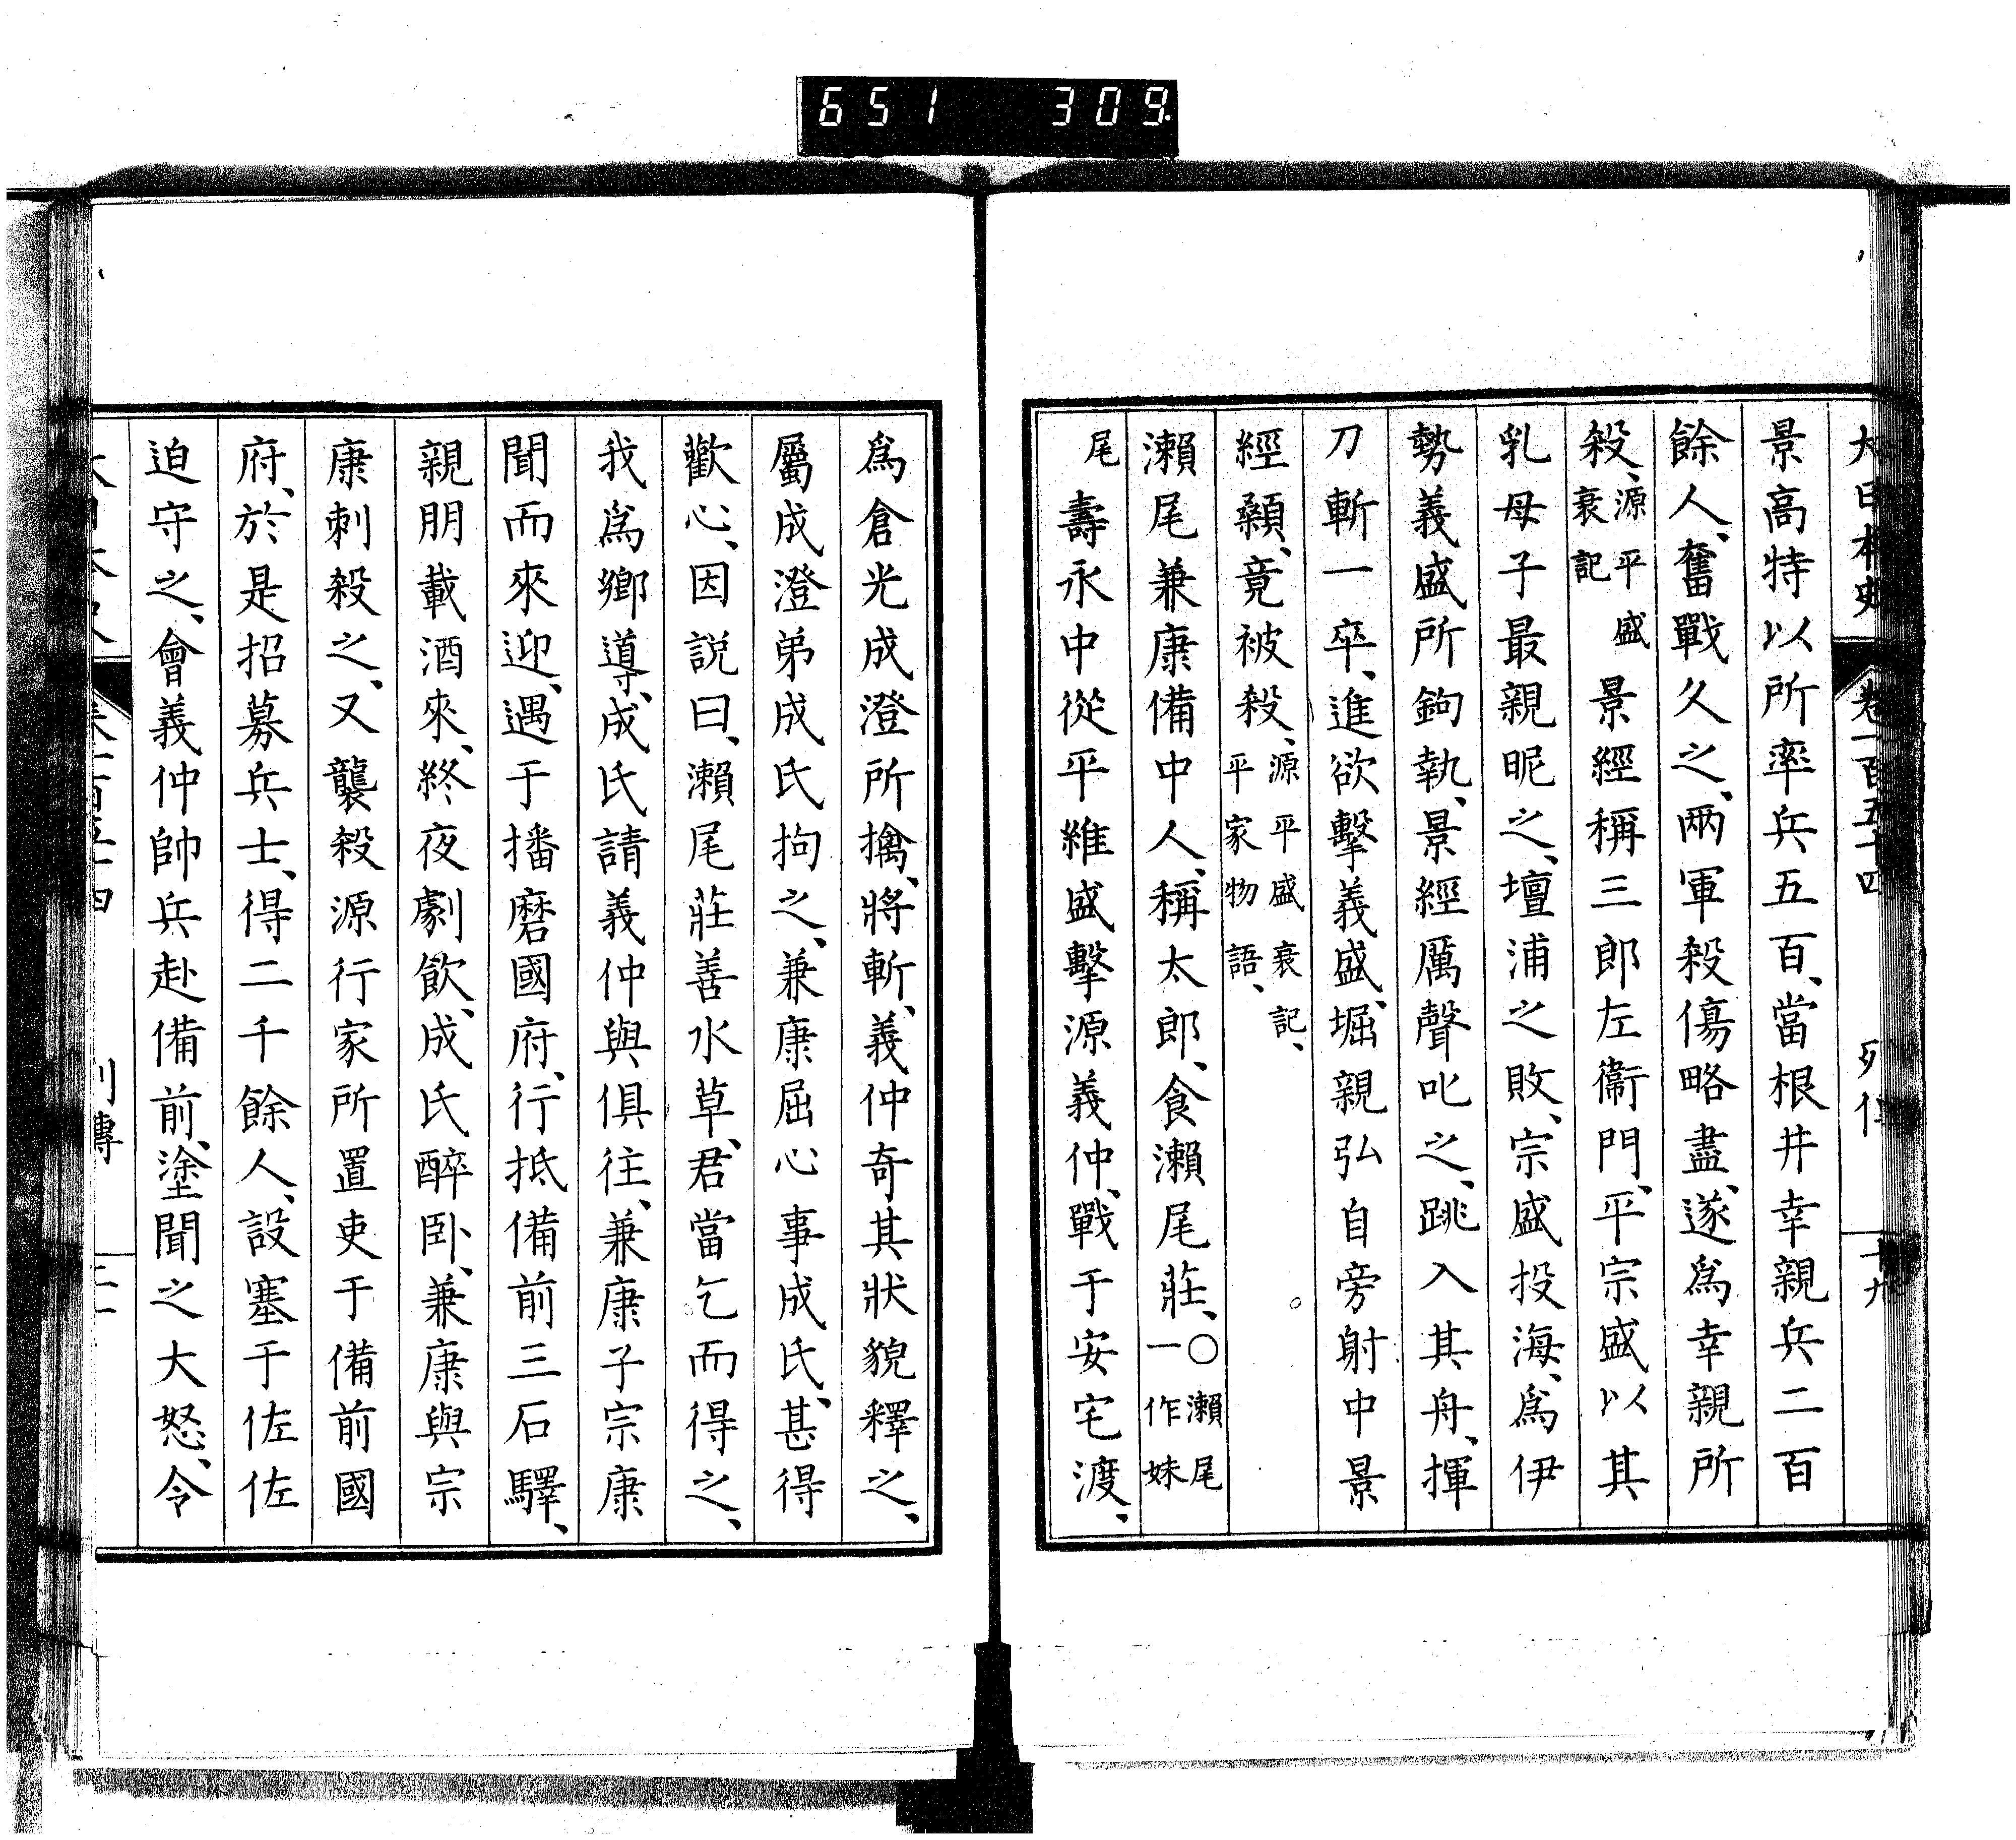 651 309
大日本史 卷一百五十四 列傳 十九
景高特以所率兵五百、當根井幸親兵二百
餘人、奮戰久之、兩軍殺傷略盡、遂爲幸親所
殺、源平盛衰記 景經稱三郎左衞門、平宗盛以其
乳母子最親昵之、壇浦之敗、宗盛投海、爲伊
勢義盛所鉤執、景經厲聲叱之、跳入其舟、揮
刀斬一卒、進欲擊義盛、堀親弘自旁射中景
經顙、竟被殺、源平盛衰記、平家物語、
瀨尾兼康備中人、稱太郎、食瀨尾莊、○瀨尾一作妹
尾 壽永中從平維盛擊源義仲、戰于安宅渡、
爲倉光成澄所擒、將斬、義仲奇其狀貌釋之、
屬成澄弟成氏拘之、兼康屈心事成氏、甚得
歡心、因説曰、瀨尾莊善水草、君當乞而得之、
我爲鄉導、成氏請義仲與俱往、兼康子宗康
聞而來迎、遇于播磨國府、行抵備前三石驛、
親朋載酒來、終夜劇飮、成氏醉臥、兼康與宗
康刺殺之、又襲殺源行家所置吏于備前國
府、於是招募兵士、得二千餘人、設塞于佐佐
迫守之、會義仲帥兵赴備前、塗聞之大怒、令